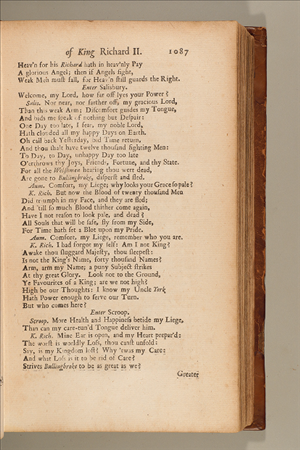 of King Richard II. 1087
Heav'n for his Richard hath in heav'nly Pay
A glorious Angel; then if Angels fight,
Weak Men must fall, for Heav'n still guards the Right.
Enter Salisbury.
Welcome, my Lord, how far off lyes your Power?
Salis. Nor near, nor farther off, my gracious Lord,
Than this weak Arm; Discomfort guides my Tongue,
And bids me speak of nothing but Despair:
One Day too late, I fear, my noble Lord,
Hath clouded all my happy Days on Earth.
Oh call back Yesterday, bid Time return,
And thou shalt have twelve thousand fighting Men:
To Day, to Day, unhappy Day too late
O'erthrows thy Joys, Friends, Fortune, and thy State.
For all the Welshmen hearing thou wert dead,
Are gone to Bullingbroke, dispers'd and fled.
Aum. Comfort, my Liege; why looks your Grace so pale?
K. Rich. But now the Blood of twenty thousand Men
Did triumph in my Face, and they are fled;
And 'till so much Blood thither come again,
Have I not reason to look pale, and dead?
All Souls that will be safe, fly from my Side,
For Time hath set a Blot upon my Pride.
Aum. Comfort, my Liege, remember who you are.
K. Rich. I had forgot my self: Am I not King?
Awake thou sluggard Majesty, thou sleepest:
Is not the King's Name, forty thousand Names?
Arm, arm my Name; a puny Subject strikes
At thy great Glory. Look not to the Ground,
Ye Favourites of a King; are we not high?
High be our Thoughts: I know my Uncle York
Hath Power enough to serve our Turn.
But who comes here?
Enter Scroop.
Scroop. More Health and Happiness betide my Liege,
Than can my care-tun'd Tongue deliver him.
K. Rich. Mine Ear is open, and my Heart prepar'd:
The worst is worldly Loss, thou canst unfold:
Say, is my Kingdom lost? Why 'twas my Care:
And what Loss is it to be rid of Care?
Strives Bullingbroke to be as great as we?
Greater